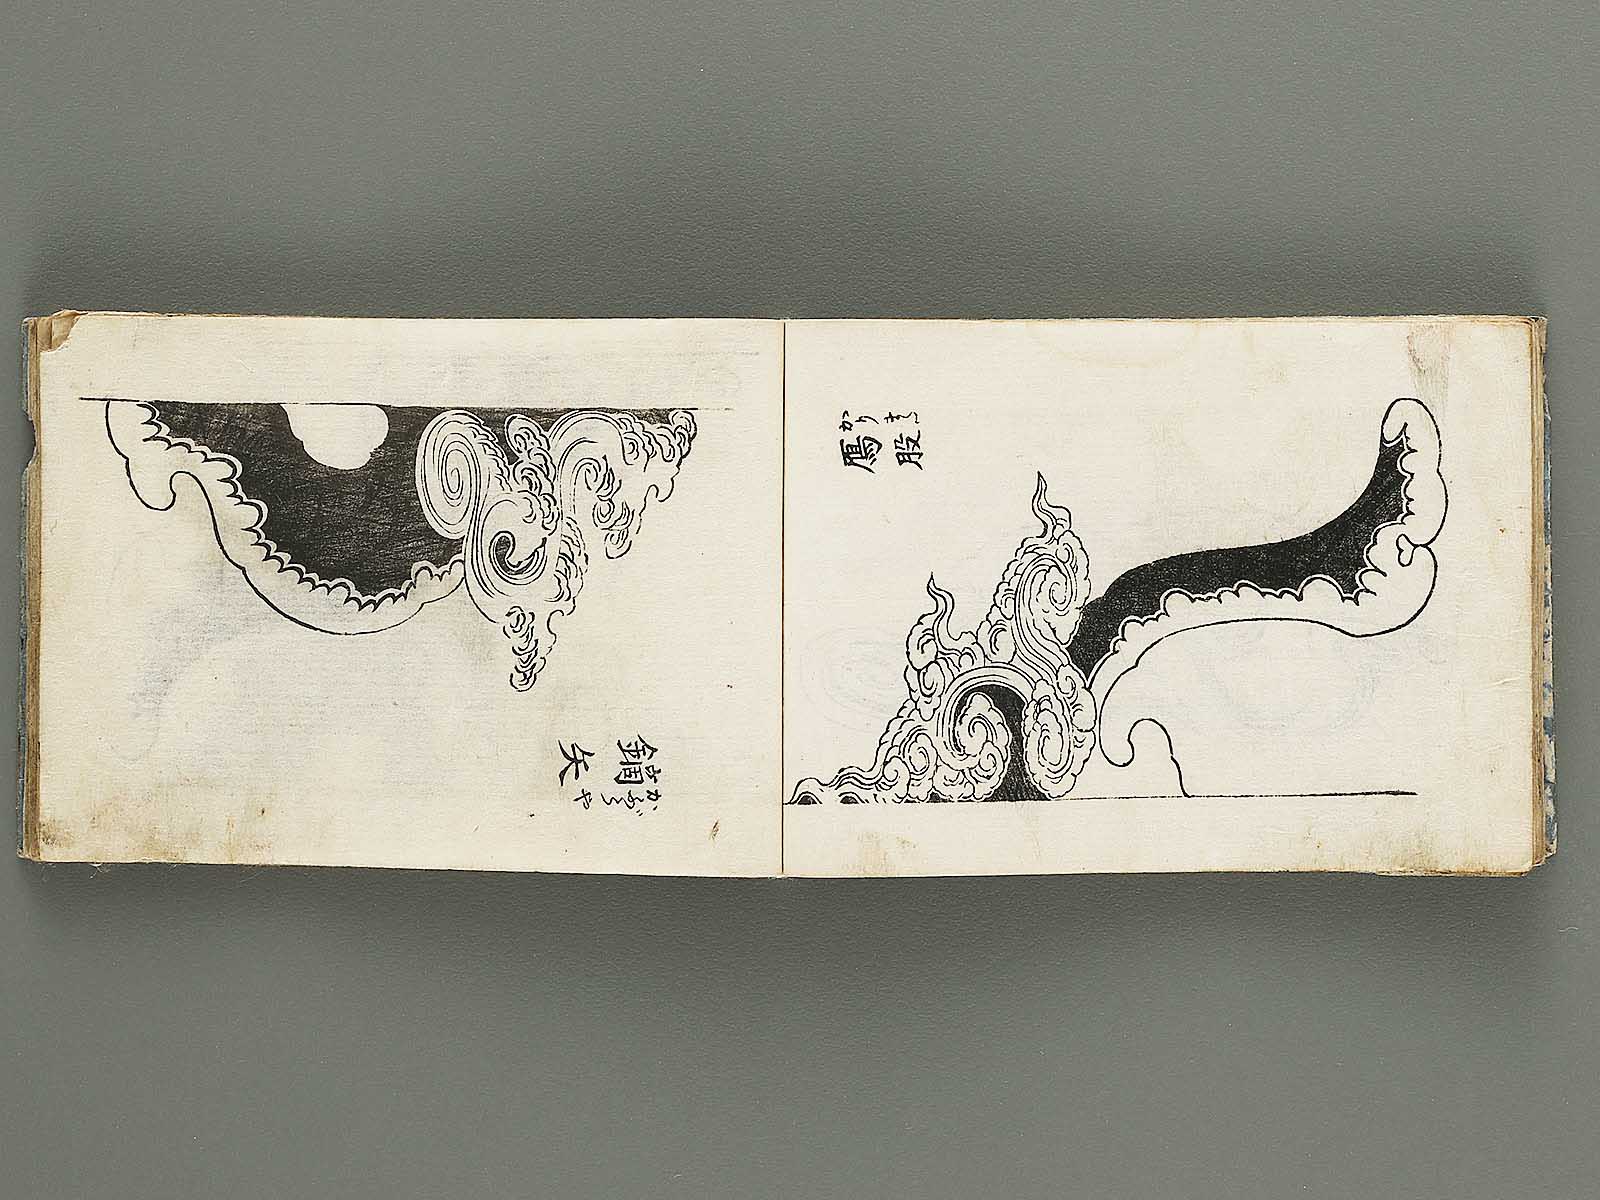 鴈股
かりまた
鏑矢
かぶらや